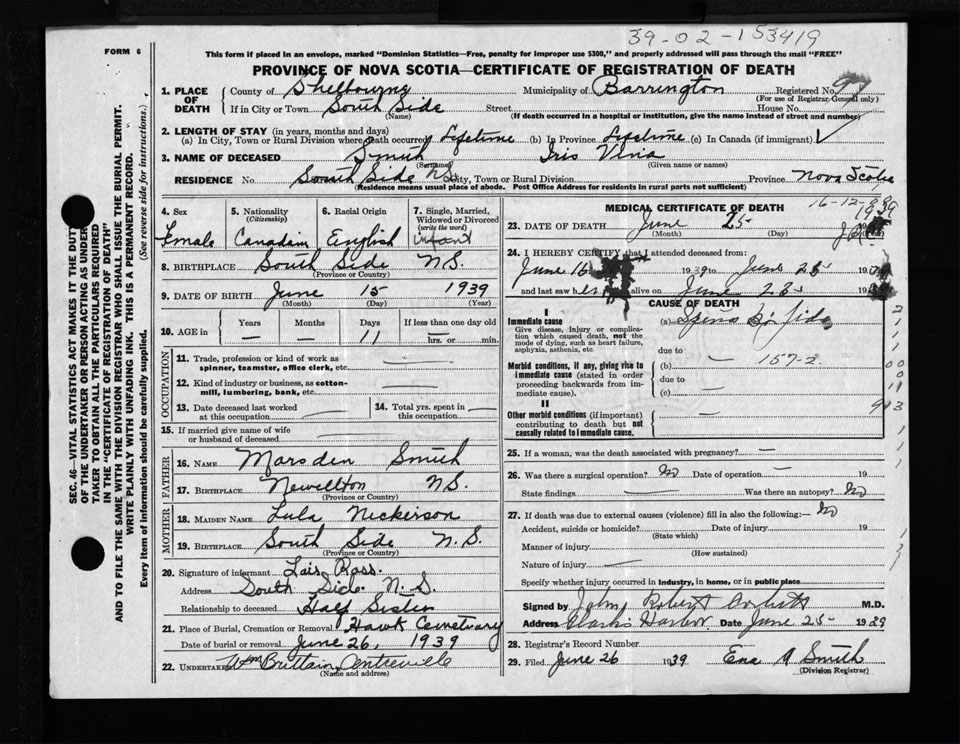 39-02-153419
FORM 6
This form if placed in an envelope, marked "Dominion Statistics—Free, penalty for improper use $300," and properly addressed will pass through the mail "FREE"
PROVINCE OF NOVA SCOTIA—CERTIFICATE OF REGISTRATION OF DEATH
1. PLACE OF DEATH
County of Shelbourne Municipality of Barrington Registered No.
(For use of Registrar-General only)
If in City or Town South Side Street House No.
(Name) (If death occurred in a hospital or institution, give the name instead of street and number)
2. LENGTH OF STAY (in years, months and days)
(a) In City, Town or Rural Division where death occurred Lifetime (b) In Province Lifetime (c) In Canada (if immigrant)
3. NAME OF DECEASED Smith Iris
(Surname) (Given name or names)
RESIDENCE No South Side N.S. City, Town or Rural Division Province Nova Scotia
(Residence means usual place of abode. Post Office Address for residents in rural parts not sufficient)
4. Sex
Female
5. Nationality
(Citizenship)
Canadain
6. Racial Origin
English
7. Single, Married, Widowed or Divorced
(write the word)
infant
8. BIRTHPLACE South Side N.S.
(Province or Country)
9. DATE OF BIRTH June 15 1939
(Month) (Day) (Year)
10. AGE in
Years Months Days If less than one day old
— — 11 hrs. or min.
OCCUPATION
11. Trade, profession or kind of work as
spinner, teamster, office clerk, etc.
12. Kind of industry or business, as cotton-
mill, lumbering, bank, etc.
13. Date deceased last worked at this occupation
14. Total yrs. spent in this occupation
15. If married give name of wife
or husband of deceased
FATHER
16. NAME Marsden Smith
17. BIRTHPLACE Newellton N.S.
(Province or Country)
MOTHER
18. MAIDEN NAME Lula Nickerson
19. BIRTHPLACE South Side N.S.
(Province or Country)
20. Signature of informant Lois Ross.
Address South Side N.S.
Relationship to deceased Half Sister
21. Place of Burial, Cremation or Removal Hawk Cemetuary
Date of burial or removal June 26, 1939
22. UNDERTAKER Wm Brittain Centreville
(Name and address)
MEDICAL CERTIFICATE OF DEATH
16-12-
23. DATE OF DEATH June 25 1939
(Month) (Day)
24. I HEREBY CERTIFY that I attended deceased from:
June 16 1939 to June 25
and last saw her alive on June 23
CAUSE OF DEATH
I
Immediate cause
Give disease, injury or complication which caused death, not the mode of dying, such as heart failure, asphyxia, asthenia, etc.
(a) Spina Bifida
due to
Morbid conditions, if any, giving rise to immediate cause (stated in order proceeding backwards from immediate cause).
(b) — 157-2.
due to —
(c)
II
Other morbid conditions (if important) contributing to death but not causally related to immediate cause.
25. If a woman, was the death associated with pregnancy? —
26. Was there a surgical operation? No Date of operation — 19
State findings Was there an autopsy? No
27. If death was due to external causes (violence) fill in also the following:— No
Accident, suicide or homicide? Date of injury 19
(State which)
Manner of injury
(How sustained)
Nature of injury —
Specify whether injury occurred in industry, in home, or in public place
Signed by John Robert M.D.
Address Clarks Harbor Date June 25- 1939
28. Registrar's Record Number
29. Filed June 26 1939 Ena A Smith
(Division Registrar)
SEC. 46—VITAL STATISTICS ACT MAKES IT THE DUTY
OF THE UNDERTAKER OR PERSON ACTING AS UNDERTAKER TO OBTAIN ALL THE PARTICULARS REQUIRED
IN THE "CERTIFICATE OF REGISTRATION OF DEATH"
AND TO FILE THE SAME WITH THE DIVISION REGISTRAR WHO SHALL ISSUE THE BURIAL PERMIT.
WRITE PLAINLY WITH UNFADING INK. THIS IS A PERMANENT RECORD.
Every item of information should be carefully supplied. (See reverse side for instructions.)